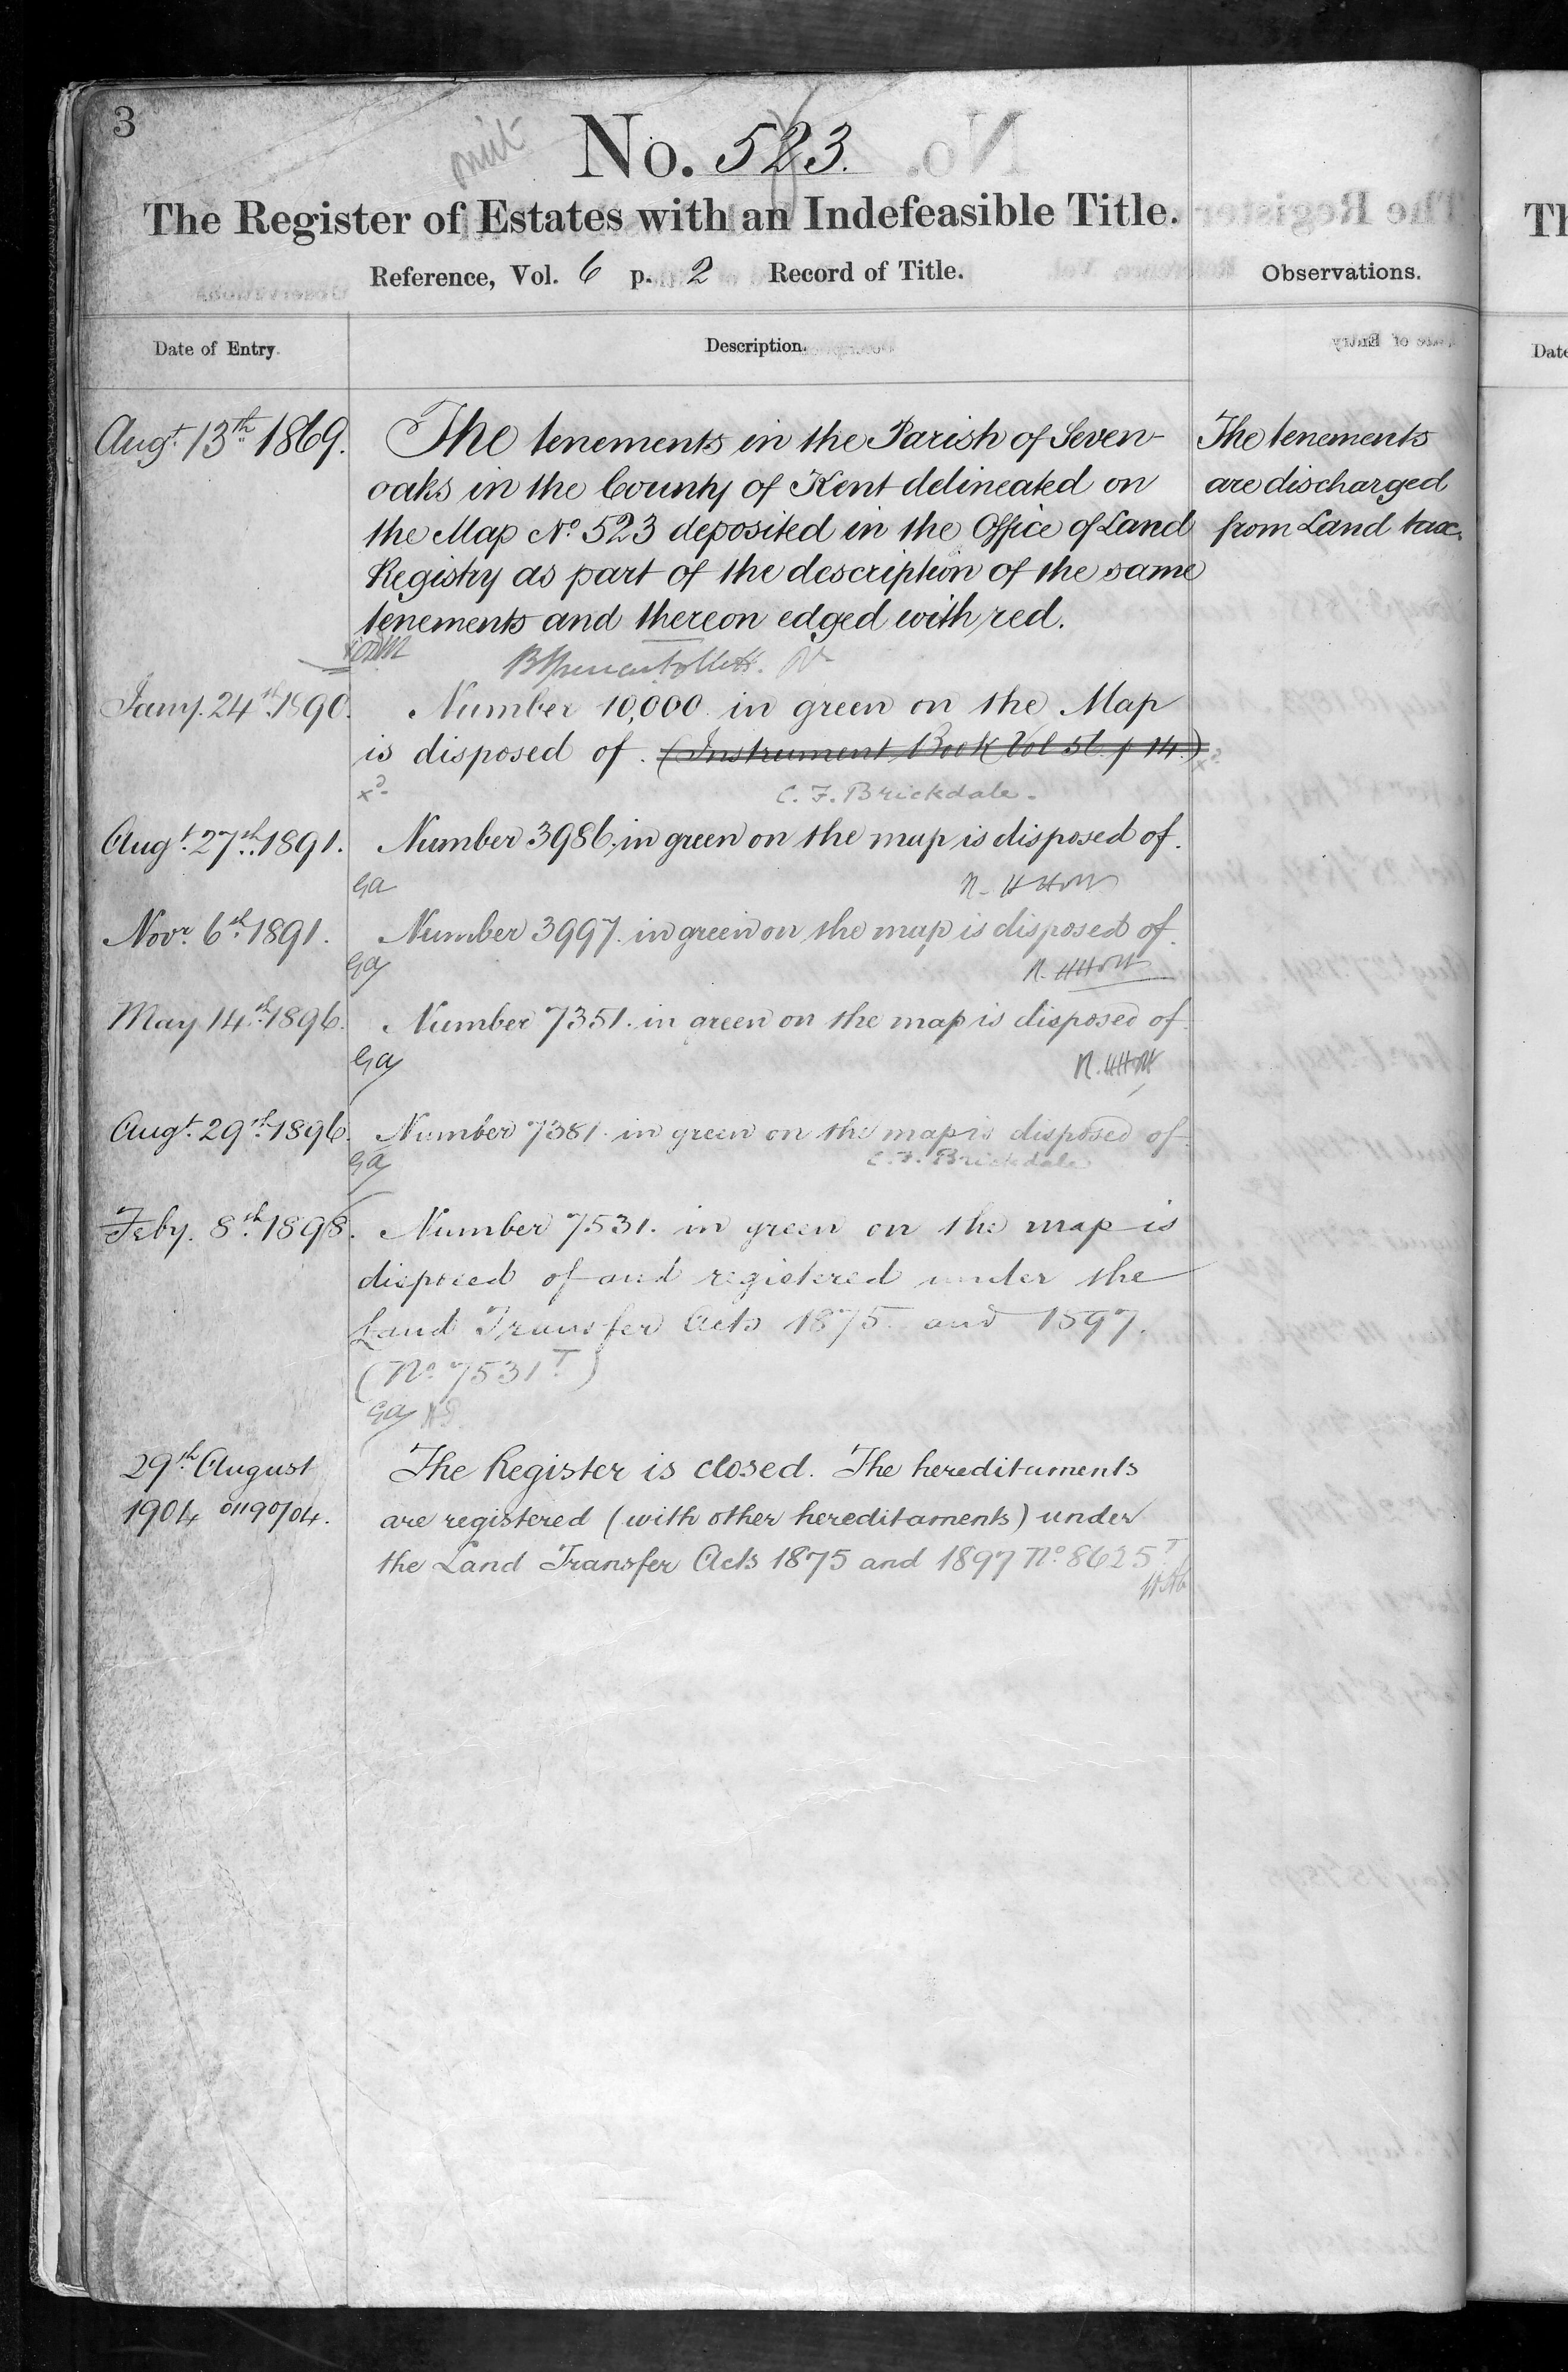 3
No. 523.
The Register of Estates with an Indefeasible Title.
Reference, Vol. 6 p. 2 Record of Title.
Observations.
Date of Entry.
Description.
Augt. 13th 1869.
The tenements in the Parish of Seven-
oaks in the County of Kent delineated on
the Map No. 523 deposited in the Office of Land
Registry as part of the description of the same
tenements and thereon edged with red.
The tenements
are discharged
from Land tax.
Jany. 24th 1890.
Number 10,000 in green on the Map
is disposed of. (Instrument Book Vol 56 p 14.)
C. F. Brickdale.
Augt. 27th 1891.
Number 3986 in green on the map is disposed of.
Ga
N. H Holt
Novr. 6th 1891.
Number 3997. in green on the map is disposed of.
Ga
N. H Holt
May 14th 1896.
Number 7351. in green on the map is disposed of.
Ga
N. H Holt
Augt. 29th 1896.
Number 7381. in green on the map is disposed of.
Ga
C. F. Brickdale
Feby. 8th 1898.
Number 7531. in green on the map is
disposed of and registered under the
Land Transfer Acts 1875 and 1897.
(No. 7531T)
Ga
29th August
1904 01190/04.
The Register is closed. The hereditaments
are registered (with other hereditaments) under
the Land Transfer Acts 1875 and 1897 No. 8625T